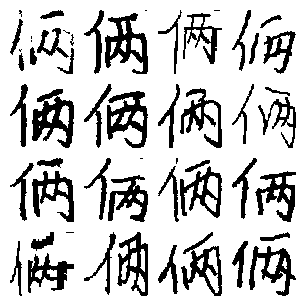 俩俩俩俩
俩俩俩俩
俩俩俩俩
俩俩俩俩